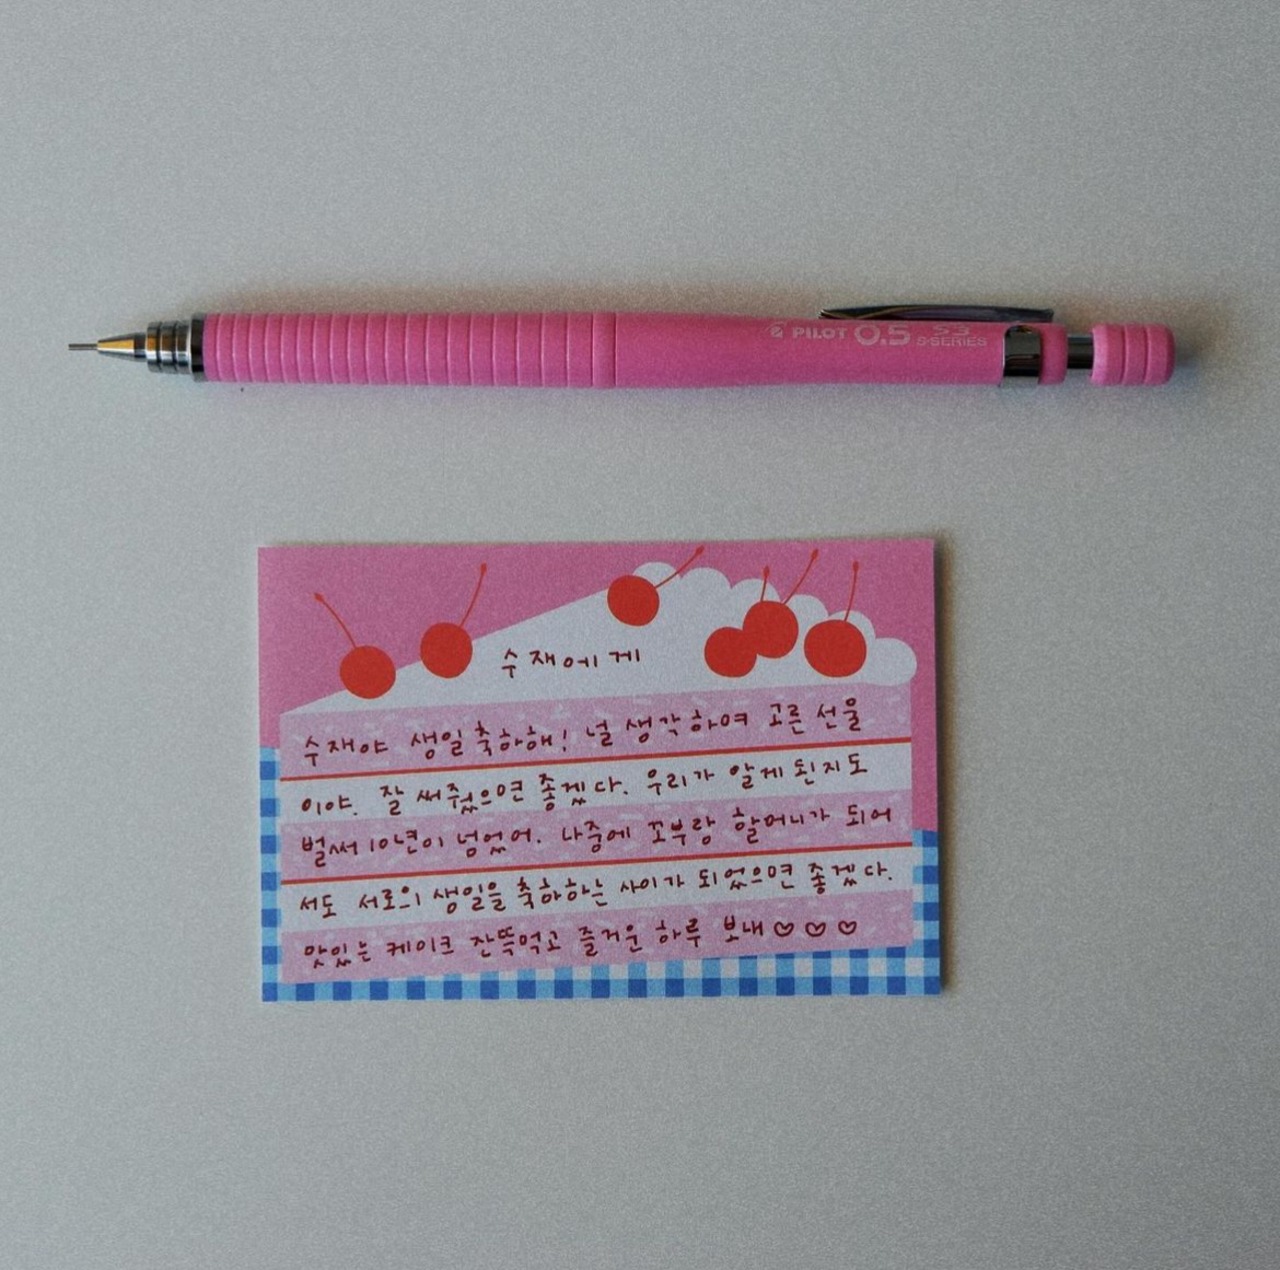 PILOT 0.5 S3
S-SERIES
수재에게
수재야 생일 축하해! 널 생각하여 고른 선물
이야. 잘 써줬으면 좋겠다. 우리가 알게 된지도
벌써 10년이 넘었어. 나중에 꼬부랑 할머니가 되어
서도 서로의 생일을 축하하는 사이가 되었으면 좋겠다.
맛있는 케이크 잔뜩먹고 즐거운 하루 보내♡♡♡